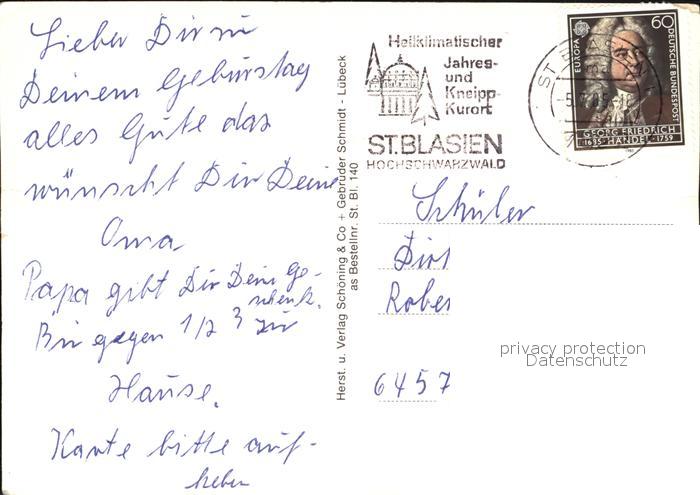 Lieber Dirk
Deinem Geburtstag
alles Gute das
wünscht Dir Deine
Oma
Papa gibt Dir Dein Ge-
schenk.
Bin gegen 1/2 3 zu
Hause.
Karte bitte auf-
heben
Herst. u. Verlag Schöning & Co + Gebrüder Schmidt - Lübeck
as Bestellnr. St. Bl. 140
Heilklimatischer
Jahres-
und
Kneipp-
Kurort
ST.BLASIEN
HOCHSCHWARZWALD
60
EUROPA
DEUTSCHE BUNDESPOST
GEORG FRIEDRICH
1685 HÄNDEL 1759
Schüler
6457
privacy protection
Datenschutz